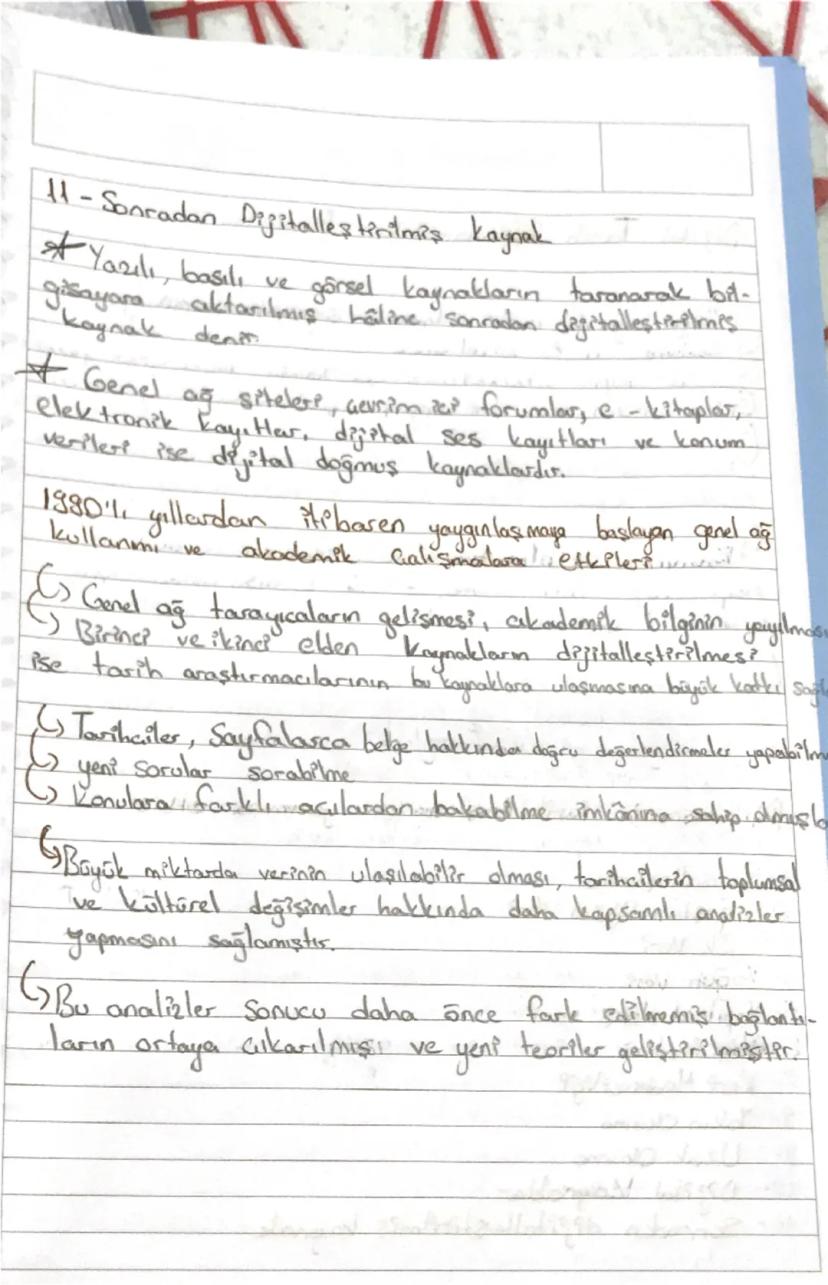 11 - Sonradan Dijitalleştirilmiş kaynak
Yazılı, basılı ve görsel kaynakların taranarak bil-
gisayara aktarılmış hâline sonradan dijitalleştirilmiş
kaynak denir.
Genel ağ siteleri, çevrim içi forumlar, e - kitaplar,
elektronik kayıtlar, dijital ses kayıtları ve konum
verileri ise dijital doğmuş kaynaklardır.
1990'lı yıllardan itibaren yaygınlaşmaya başlayan genel ağ
kullanımı ve akademik çalışmalara etkileri
Genel ağ tarayıcaların gelişmesi, akademik bilginin yayılması
Birinci ve ikinci elden kaynakların dijitalleştirilmesi
ise tarih araştırmacılarının bu kaynaklara ulaşmasına büyük katkı sağl
Tarihçiler, Sayfalarca belge hakkında doğru değerlendirmeler yapabilm
yeni sorular sorabilme
Konulara farklı açılardan bakabilme imkânına sahip olmuşla
Büyük miktarda verinin ulaşılabilir olması, tarihçilerin toplumsal
ve kültürel değişimler hakkında daha kapsamlı analizler
yapmasını sağlamıştır.
Bu analizler sonucu daha önce fark edilmemiş bağlantı-
ların ortaya çıkarılmış ve yeni teoriler geliştirilmiştir.